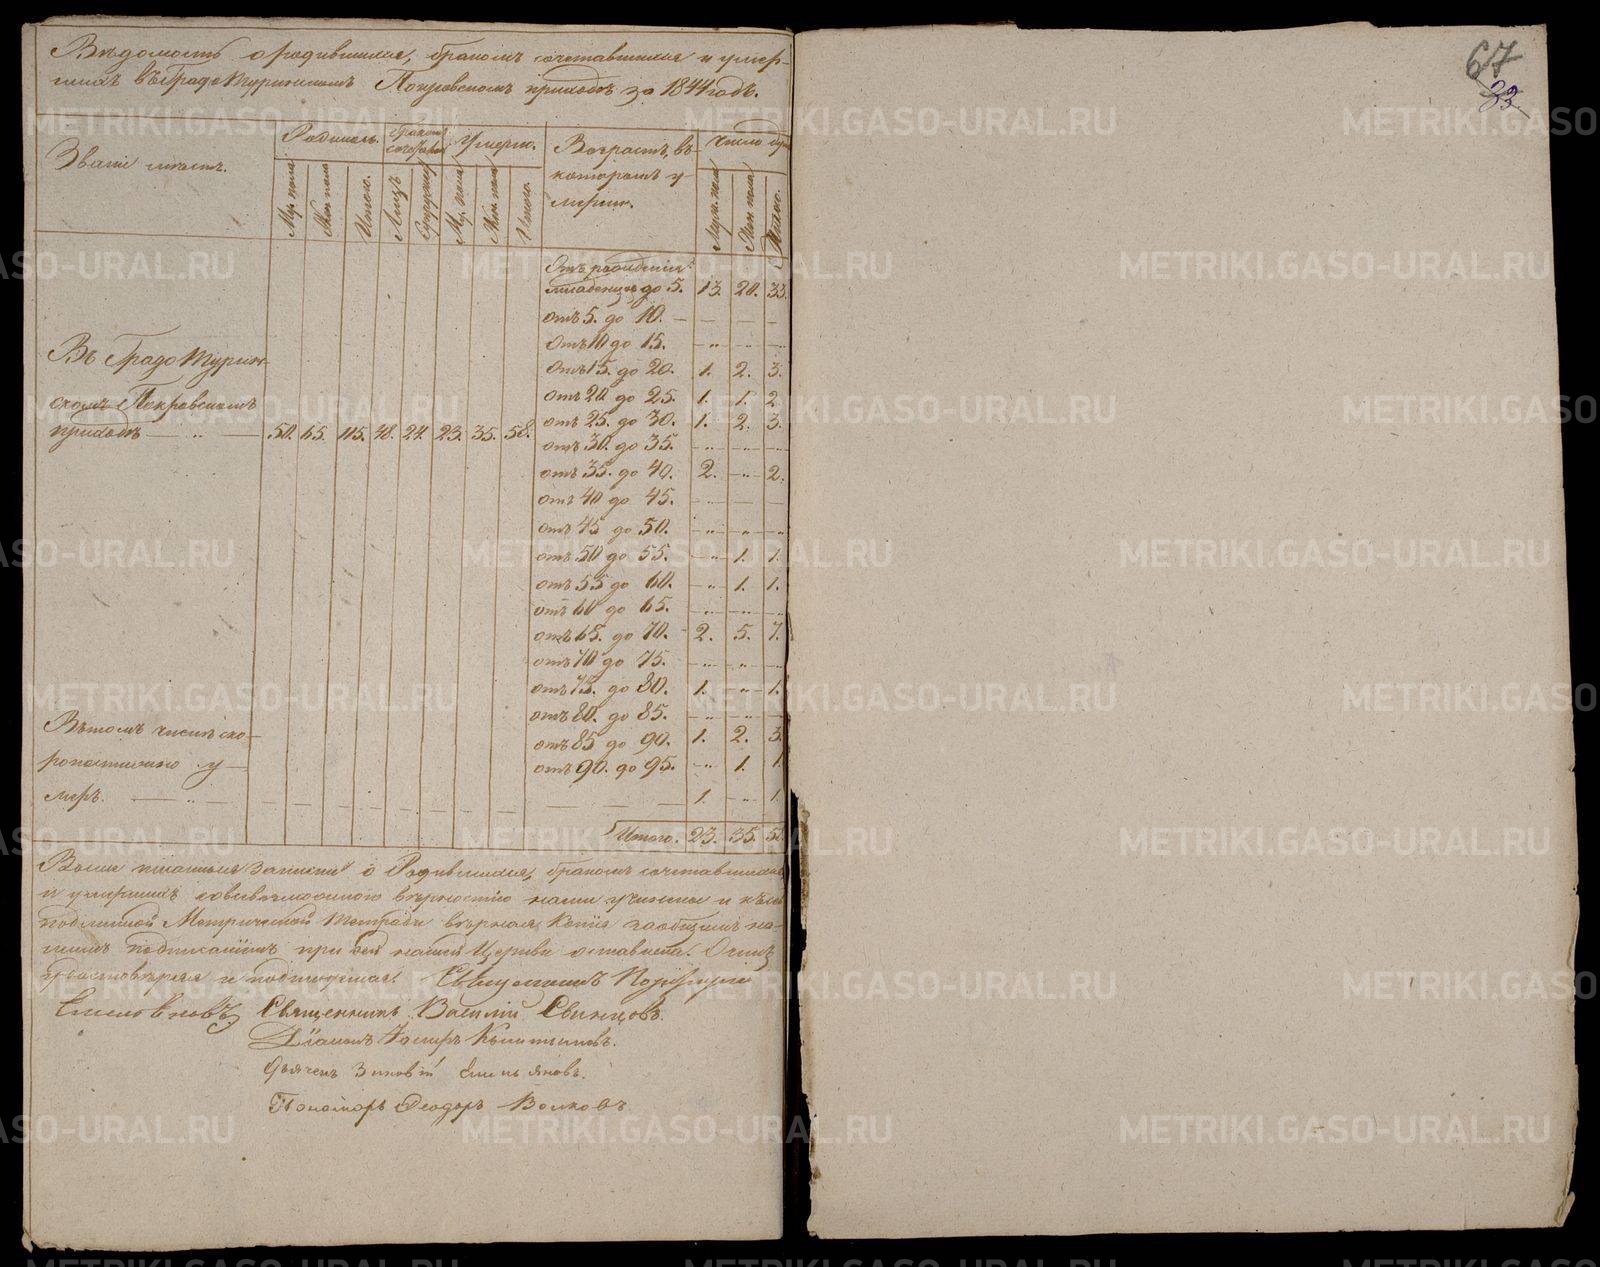 Вѣдомость о родившихся, бракомъ сочетавшихся и умер-
шихъ въ Градо Туринскомъ Покровскомъ приходѣ за 1844 годъ.
Званіе мѣстъ.
Родилось.
бракомъ сочетались
Умерло.
Возрастъ, въ
которомъ у-
мерли.
число
Муж. пола
Жен. пола
Итого.
Лицъ
Супружествъ
Муж. пола
Жен. пола
Итого.
Муж. пола
Жен. пола
Итого.
Отъ рожденія
младенцы до 5. 13. 20. 33.
отъ 5. до 10. — — — —
отъ 10 до 15. — „ — — —
отъ 15. до 20. 1. 2. 3.
отъ 20 до 25. 1. 1. 2
отъ 25. до 30. 1. 2. 3.
отъ 30. до 35.
отъ 35. до 40. 2. — „ — 2.
отъ 40 до 45.
отъ 45 до 50.
отъ 50 до 55. — „ 1. 1.
отъ 55 до 60. — „ 1. 1.
отъ 60 до 65.
отъ 65. до 70. 2. 5. 7.
отъ 70 до 75.
отъ 75. до 80. 1. — „ — 1.
отъ 80. до 85.
отъ 85 до 90. 1. 2. 3.
отъ 90. до 95. — „ 1. 1.
Въ Градо Турин-
скомъ Покровскомъ
приходѣ — „ — 50. 65. 115. 48. 24. 23. 35. 58.
Въ томъ числѣ ско-
ропостижно у-
меръ. — „ — 1. — „ — 1.
Итого. 23. 35. 58
записки о Родившихся, бракомъ сочетавшихся
и умершихъ со всевозможною вѣрностію нами учинены и
подлинной Метрической Тетради вѣрная Копія за общимъ на-
шимъ подписаніемъ при сей нашей Церкви оставлена. Въ чемъ
и подписуемся. Священникъ Порфирій
Словцовъ
Священникъ Василій Свинцовъ.
Діаконъ
Дьячекъ Зиновій Емельяновъ.
Пономарь Ѳеодоръ Волковъ.
67
33
METRIKI.GASO-URAL.RU